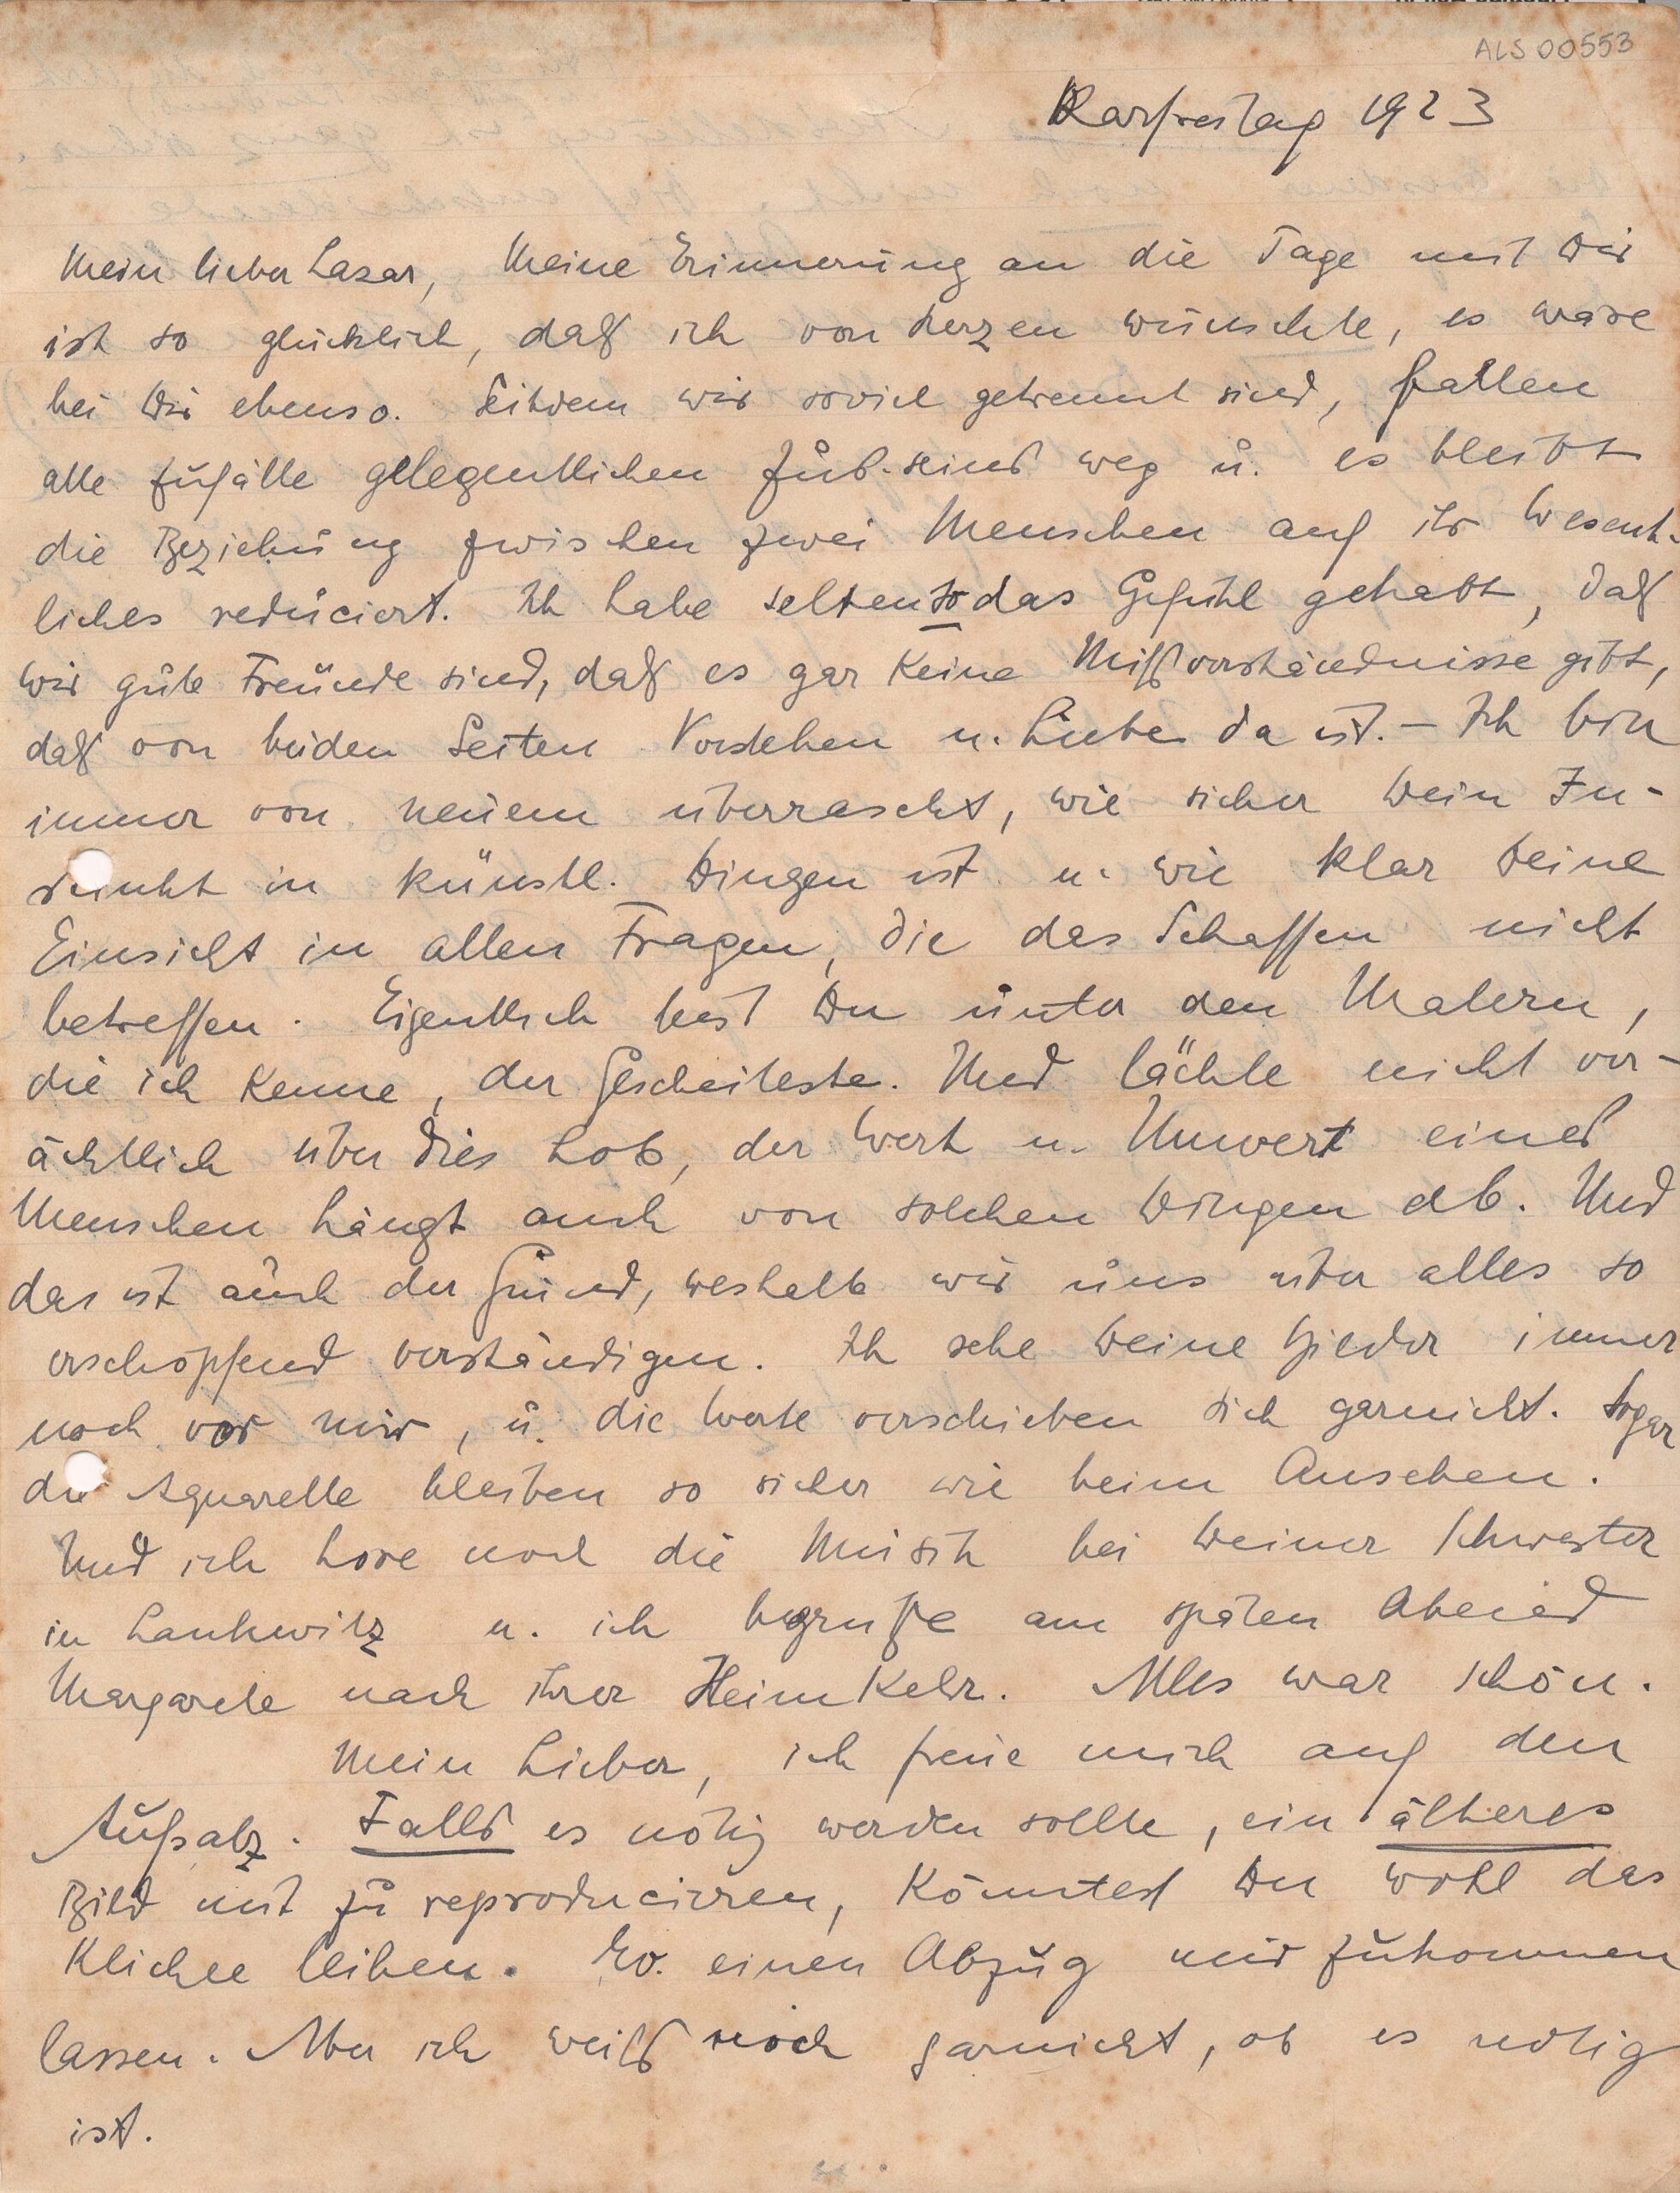 ALS 00553
Karfreitag 1923
Mein lieber Lasar, Meine Erinnerung an die Tage mit Dir
ist so glücklich, daß ich von Herzen wünschte, es wäre
bei Dir ebenso. Seitdem wir soviel getrennt sind, fallen
alle Zufälle gelegentlichen Zus.-seins weg u. es bleibt
die Beziehung zwischen zwei Menschen auf ihr Wesent-
liches reduciert. Ich habe selten so das Gefühl gehabt, daß
wir gute Freunde sind, daß es gar keine Mißverständnisse gibt,
daß von beiden Seiten Verstehen u. Liebe da ist. – Ich bin
immer von neuem überrascht, wie sicher Dein In-
stinkt in künstl. Dingen ist u. wie klar Deine
Einsicht in allen Fragen, die das Schaffen nicht
betreffen. Eigentlich bist Du unter den Malern,
die ich kenne, der Gescheiteste. Und lächle nicht ver-
ächtlich über dies Lob, der Wert u. Unwert eines
Menschen hängt auch von solchen Dingen ab. Und
das ist auch der Grund, weshalb wir uns über alles so
erschöpfend verständigen. Ich sehe Deine Bilder immer
noch vor mir, u. die Werte verschieben sich garnicht. Sogar
die Aquarelle bleiben so sicher wie beim Ansehen.
Und ich höre noch die Musik bei Deiner Schwester
in Lankwitz u. ich begrüße am späten Abend
Margarete nach ihrer Heimkehr. Alles war schön.
Mein Lieber, ich freue mich auf den
Aufsatz. Falls es nötig werden sollte, ein älteres
Bild mit zu reproducieren, könntest Du wohl das
Klichee leihen. Ev. einen Abzug mir zukommen
lassen. Aber ich weiß noch garnicht, ob es nötig
ist.